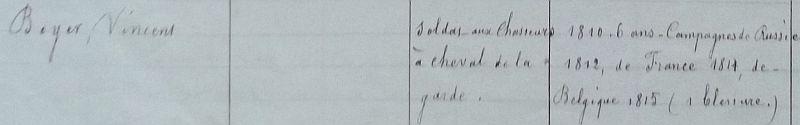 Boyer, Vincent soldat aux Chasseurs 1810. 6 ans - Campagnes de Russie
à cheval de la 1812, de France 1814, de
garde. Belgique 1815 (1 blessure.)